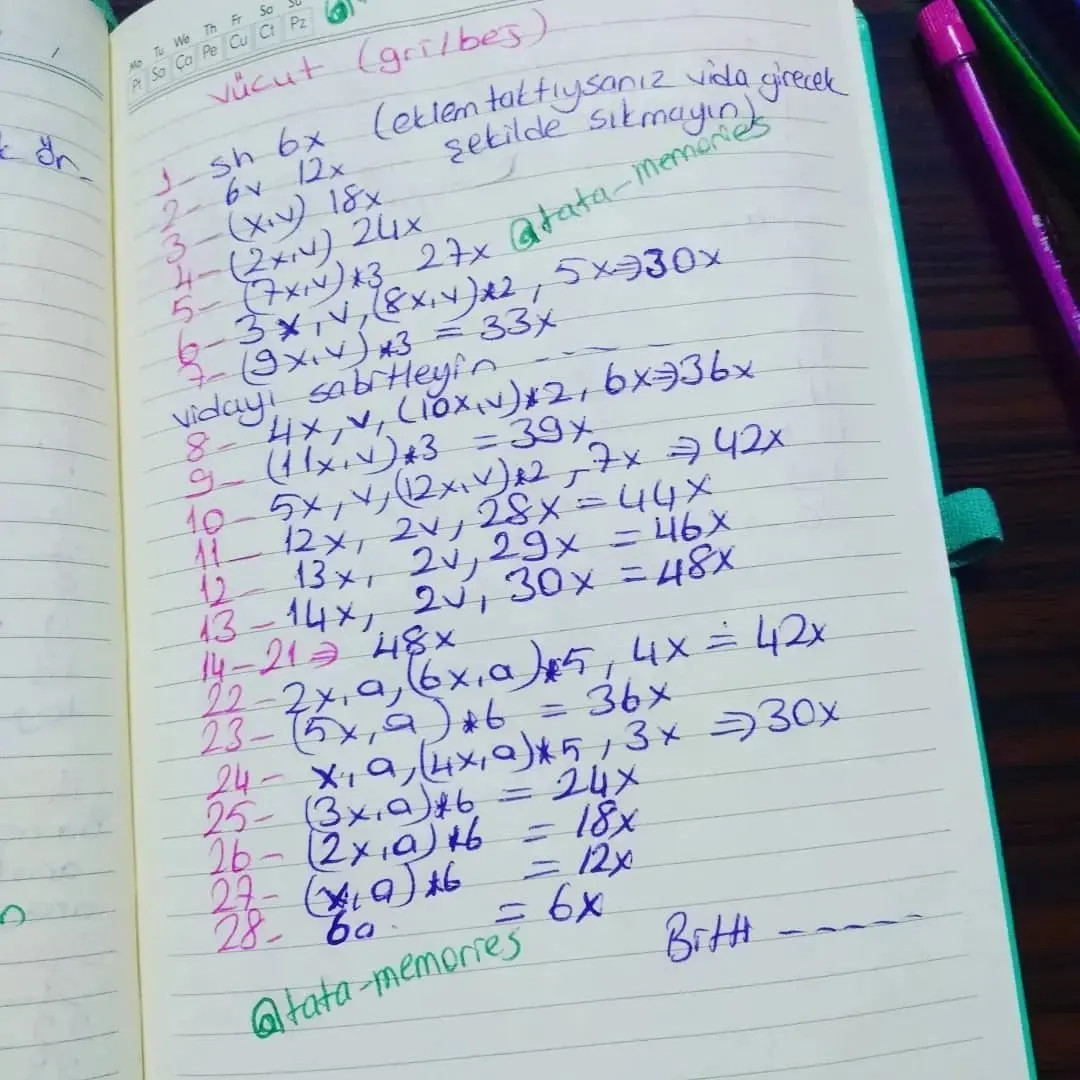 Mo Tu We Th Fr Sa Su
Pt Sa Ça Pe Cu Ct Pz
vücut (grilbeş)
1- sh 6x (eklem taktıysanız vida girecek
şekilde sıkmayın)
2- 6v 12x
3- (x,v) 18x
4- (2x,v) 24x
@tata-memories
5- (7x,v)*3 27x
6- 3x,v,(8x,v)*2, 5x⇒30x
7- (9x,v)*3 = 33x
vidayı sabitleyin -----
8- 4x,v,(10x,v)*2, 6x⇒36x
9- (11x,v)*3 = 39x
10- 5x,v,(12x,v)*2, 7x ⇒ 42x
11- 12x, 2v, 28x = 44x
12- 13x, 2v, 29x = 46x
13- 14x, 2v, 30x = 48x
14-21⇒ 48x
22- 2x,a,(6x,a)*5, 4x = 42x
23- (5x,a)*6 = 36x
24- x,a,(4x,a)*5, 3x ⇒30x
25- (3x,a)*6 = 24x
26- (2x,a)*6 = 18x
27- (x,a)*6 = 12x
28- 6a = 6x
Bitti -----
@tata-memories